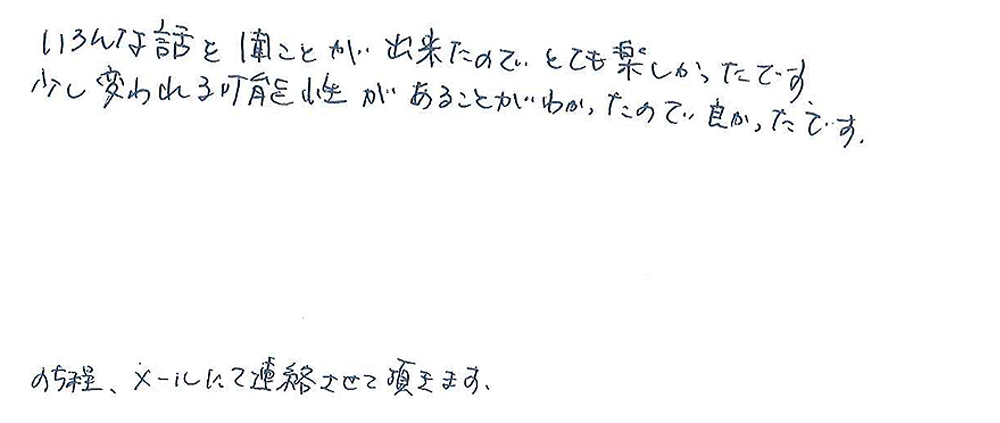 いろんな話を聞ことが出来たのでとても楽しかったです
少し変われる可能性があることがわかったので良かったです.
のち程、メールにて連絡させて頂きます.